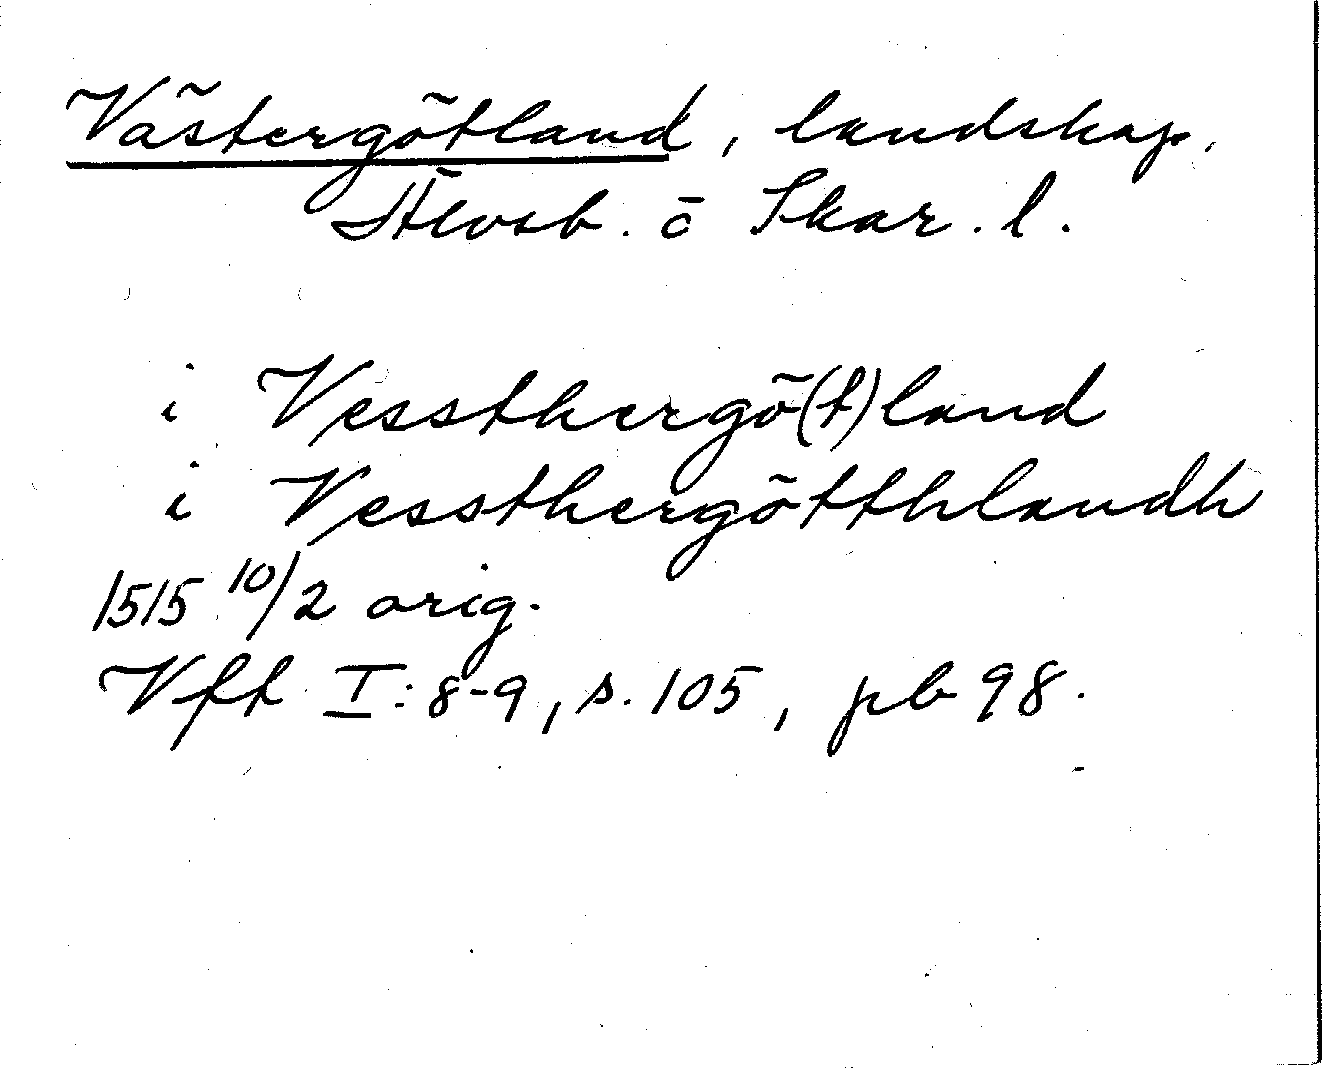 Västergötland, landskap,
Älvsb. o Skar. l.
i Vessthergö(t)land
i Vessthergötthlandh
1515 10/2 orig.
Vft I:8-9, s. 105, pb 98.